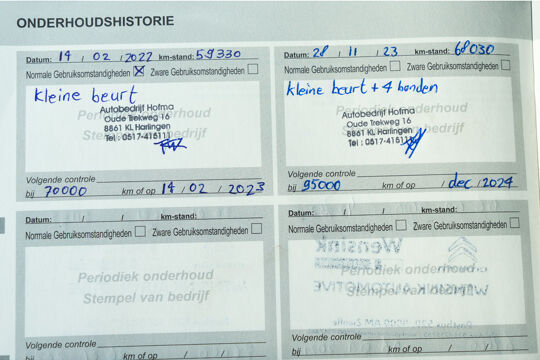 ONDERHOUDSHISTORIE
Datum: 14 / 02 / 2022 km-stand: 59330
Normale Gebruiksomstandigheden Zware Gebruiksomstandigheden
kleine beurt
Periodiek onderhoud
Stempel van bedrijf
Autobedrijf Hofma
Oude Trekweg 16
8861 KL Harlingen
Tel : 0517-415111
Volgende controle
bij 70000 km of op 14 / 02 / 2023
Datum: 28 / 11 / 23 km-stand: 68030
Normale Gebruiksomstandigheden Zware Gebruiksomstandigheden
kleine beurt + 4 banden
Periodiek onderhoud
Stempel van bedrijf
Autobedrijf Hofma
Oude Trekweg 16
8861 KL Harlingen
Tel : 0517-415111
Volgende controle
bij 95000 km of op / dec / 2024
Datum: / / km-stand:
Normale Gebruiksomstandigheden Zware Gebruiksomstandigheden
Periodiek onderhoud
Stempel van bedrijf
Volgende controle
bij km of op / /
Datum: / / km-stand:
Normale Gebruiksomstandigheden Zware Gebruiksomstandigheden
Wensink
Periodiek onderhoud
Stempel van bedrijf
WENSINK AUTOMOTIVE
Volgende controle
bij km of op / /